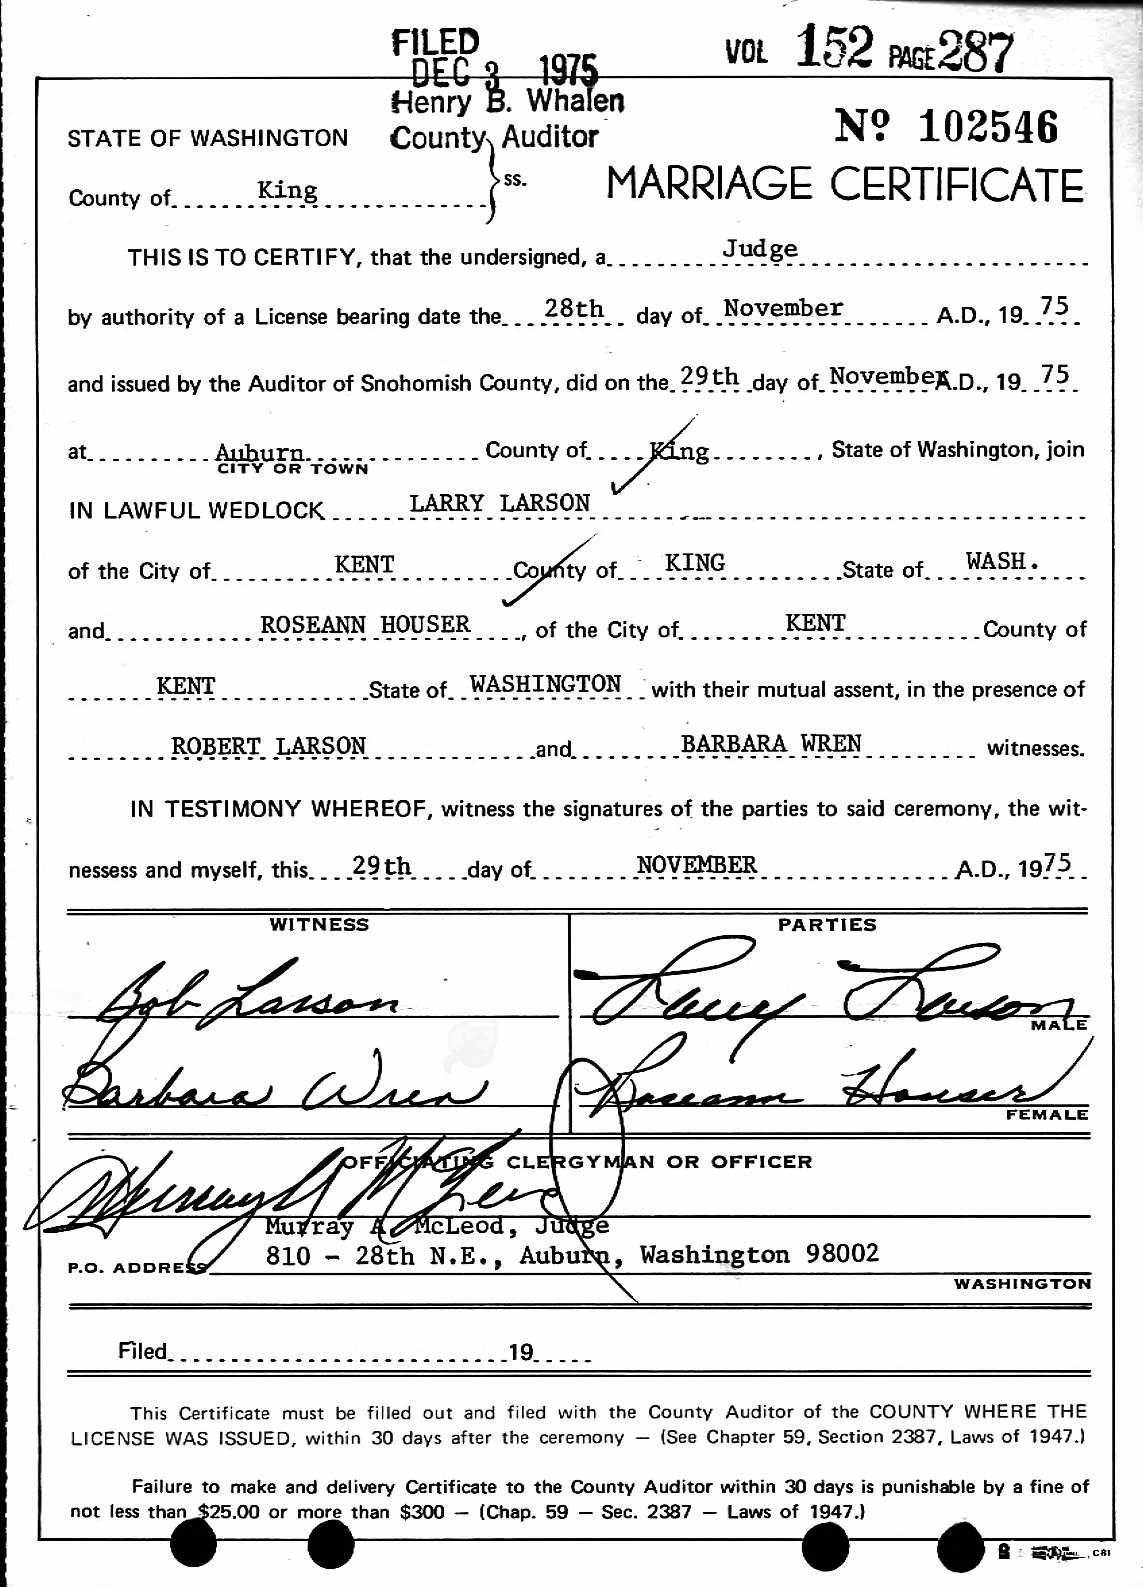 FILED
DEC 3 1975
VOL 152 PAGE 287
Henry B. Whalen
County Auditor
Nº 102546
STATE OF WASHINGTON
County of King ss.
MARRIAGE CERTIFICATE
THIS IS TO CERTIFY, that the undersigned, a Judge
by authority of a License bearing date the 28th day of November A.D., 19 75
and issued by the Auditor of Snohomish County, did on the 29th day of November A.D., 19 75
at Auburn County of King, State of Washington, join
CITY OR TOWN
IN LAWFUL WEDLOCK LARRY LARSON
of the City of KENT County of KING State of WASH.
and ROSEANN HOUSER, of the City of KENT County of
KENT State of WASHINGTON with their mutual assent, in the presence of
ROBERT LARSON and BARBARA WREN witnesses.
IN TESTIMONY WHEREOF, witness the signatures of the parties to said ceremony, the wit-
nessess and myself, this 29th day of NOVEMBER A.D., 1975
WITNESS
PARTIES
Bob Larson
Larry Larson
MALE
Barbara Wren
Roseann Houser
FEMALE
OFFICIATING CLERGYMAN OR OFFICER
Murray A McLeod
Murray A. McLeod, Judge
P.O. ADDRESS 810 - 28th N.E., Auburn, Washington 98002
WASHINGTON
Filed 19
This Certificate must be filled out and filed with the County Auditor of the COUNTY WHERE THE
LICENSE WAS ISSUED, within 30 days after the ceremony — (See Chapter 59, Section 2387, Laws of 1947.)
Failure to make and delivery Certificate to the County Auditor within 30 days is punishable by a fine of
not less than $25.00 or more than $300 — (Chap. 59 — Sec. 2387 — Laws of 1947.)
C81